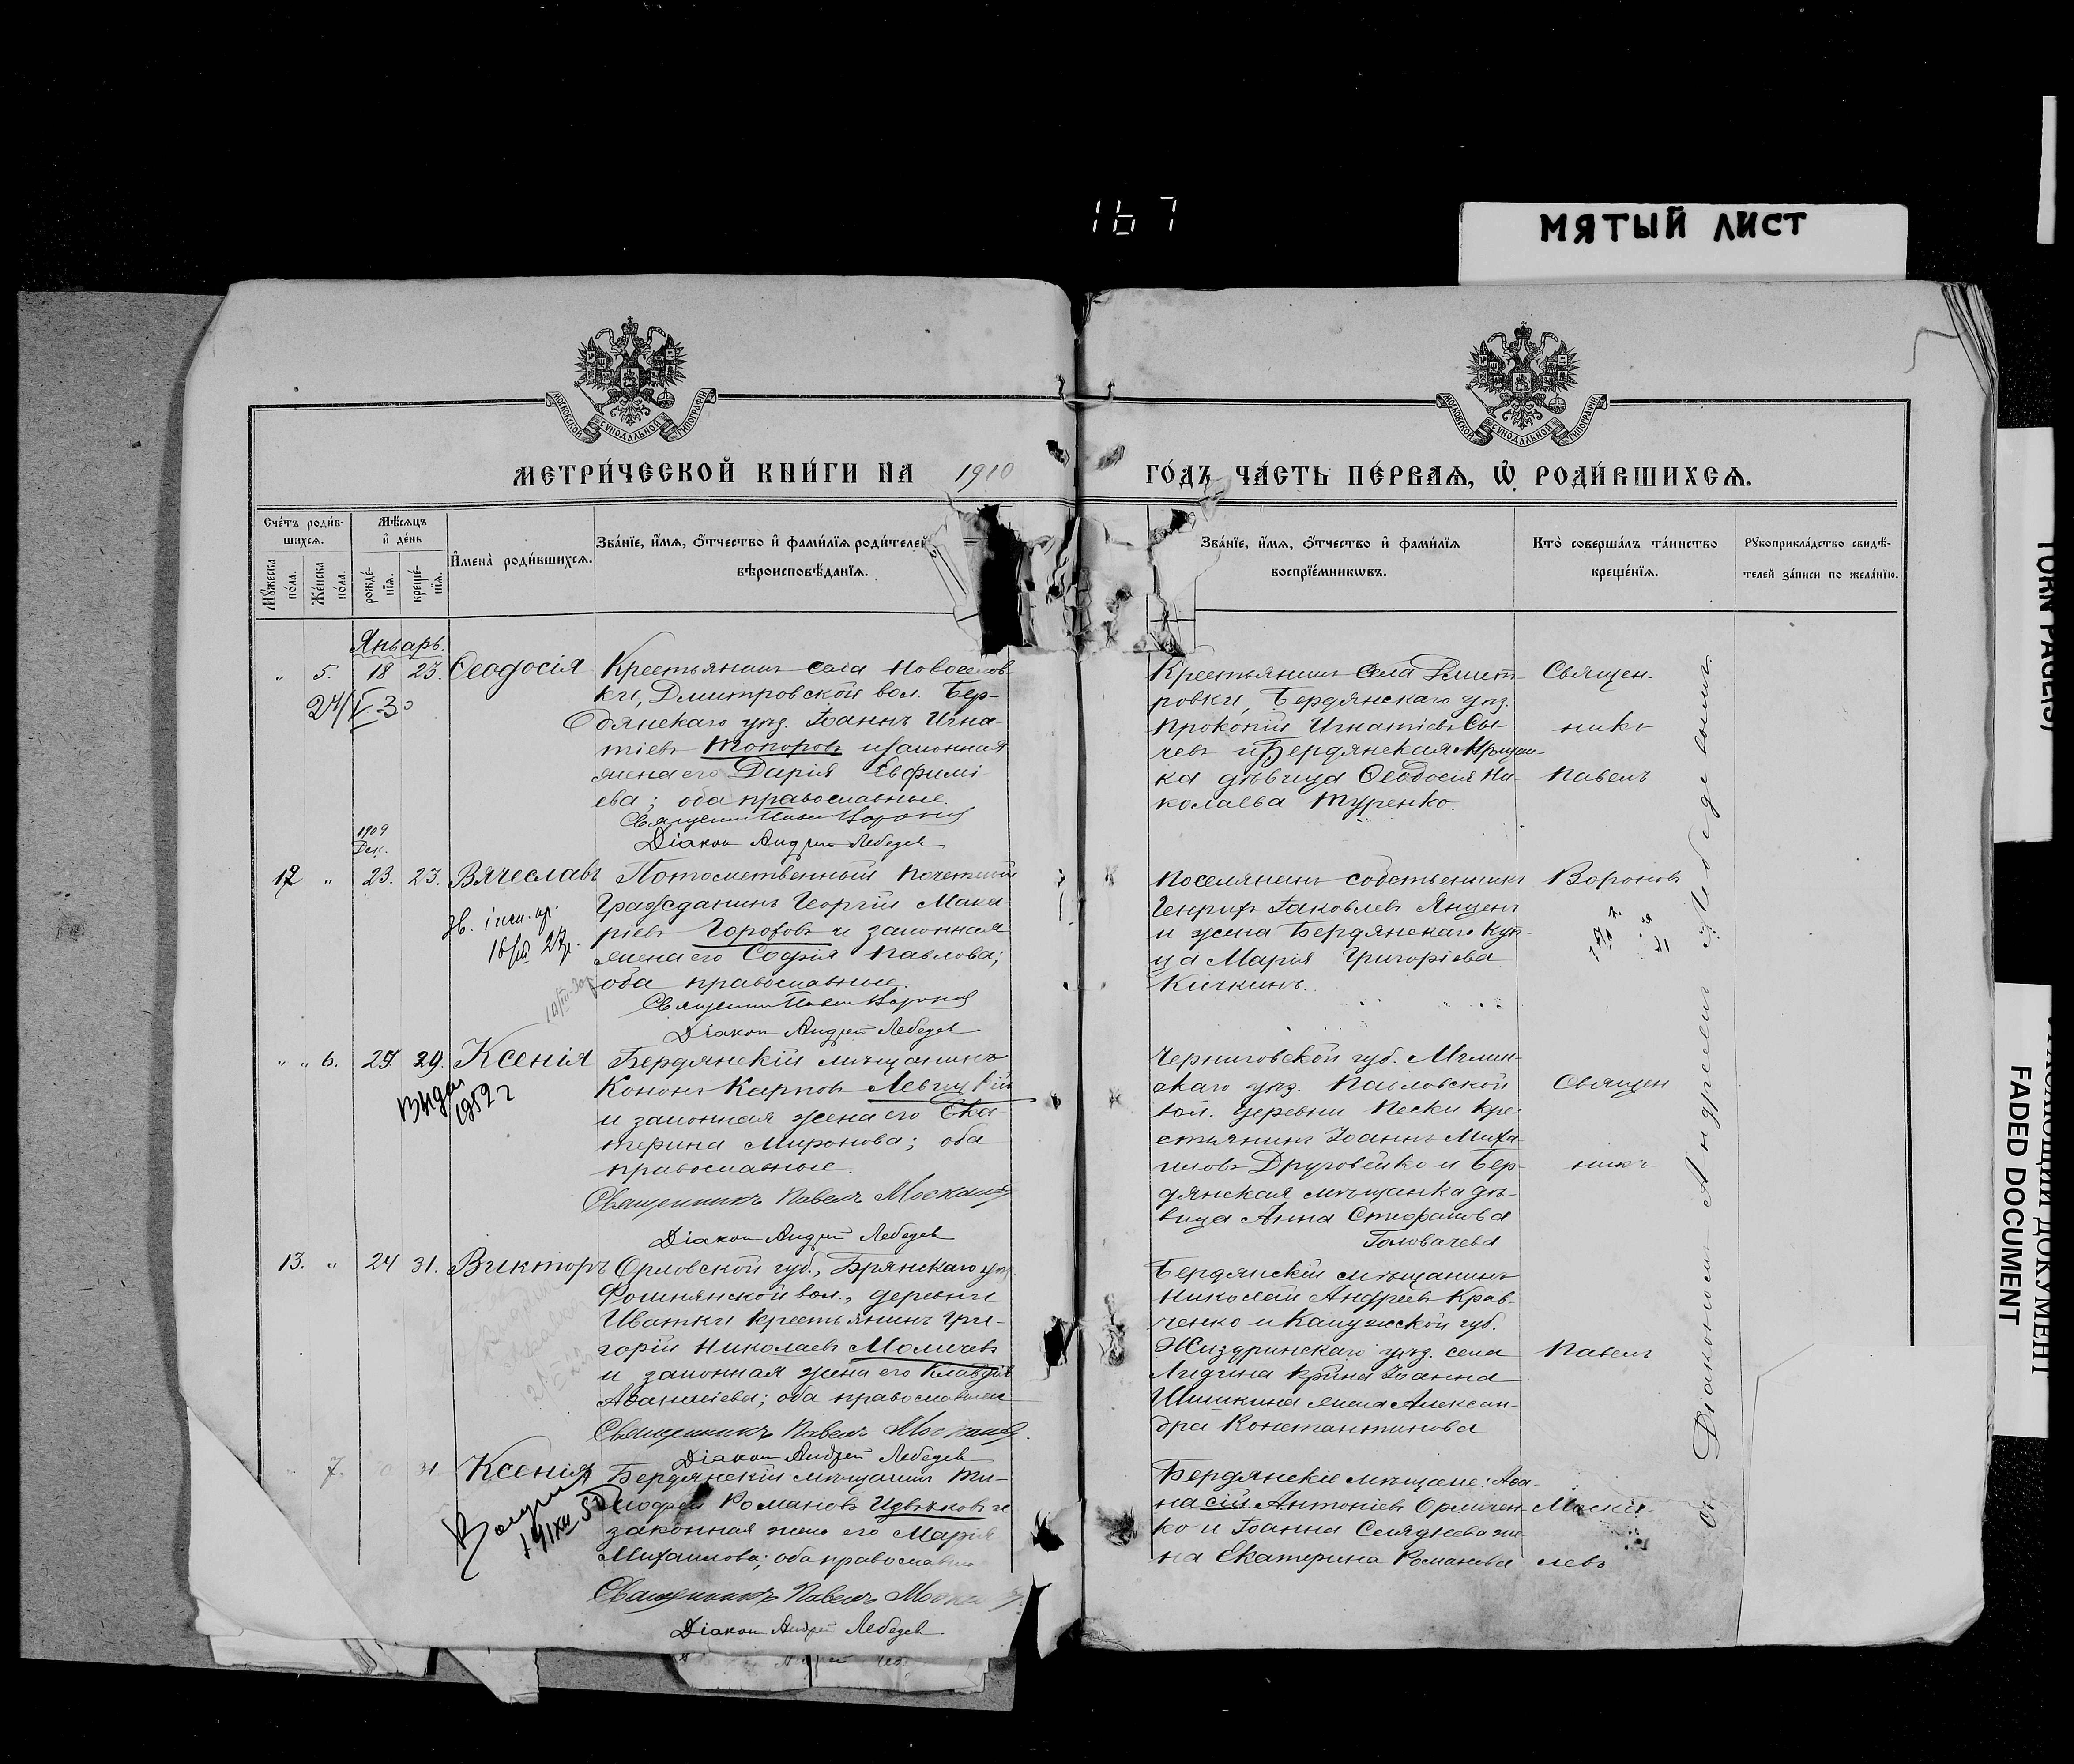 167
МЯТЫЙ ЛИСТ
МОСКОВСКОЙ СѴНОДАЛЬНОЙ ТИПОГРАФІИ
МОСКОВСКОЙ СѴНОДАЛЬНОЙ ТИПОГРАФІИ
МЕТРИ́ЧЕСКОЙ КНИ́ГИ НА 1910
ГО́ДЪ ЧА́СТЬ ПЕ́РВАѦ, Ѽ РОДИ́ВШИХСѦ.
Сче́тъ роди́в-
шихсѧ.
Мꙋ́жеска
по́ла.
Же́нска
по́ла.
Мѣ́сѧцъ
и҆ де́нь
рожде́-
нїѧ.
креще́-
нїѧ.
И҆мена̀ роди́вшихсѧ.
Зва́нїе, и҆́мѧ, ѻ҆́тчество и҆ фами́лїѧ роди́телей
вѣроисповѣ́данїѧ.
Зва́нїе, и҆́мѧ, ѻ҆́тчество и҆ фами́лїѧ
воспрїе́мникѡвъ.
Кто̀ соверша́лъ та́инство
креще́нїѧ.
Рꙋкоприкла́дство свидѣ́-
телей за́писи по жела́нїю.
Январь.
" 5. 18 23. Ѳеодосія
24/V-30
Крестьянинъ села Новоселов-
ки, Дмитровской вол. Бер-
дянскаго уѣз. Іоаннъ Игна-
тіевъ Топоровъ и законная
жена его Дарія Евфимі-
ева; оба православные.
Священникъ Павелъ Вороновъ
Діаконъ Андрей Лебедев
Крестьянинъ села Дмит-
ровки, Бердянскаго уѣз.
Прокопій Игнатіевъ Сы-
чевъ и Бердянская Мѣщан-
ка дѣвица Ѳеодосія Ни-
колаева Туренко.
Священ-
никъ
Павелъ
1909
Дек.
12 " 23. 23. Вячеславъ
Потомственный почетный
Гражданинъ Георгій Мака-
ріевъ Гороховъ и законная
жена его Софія Павлова;
оба православные.
Священникъ Павелъ Вороновъ
Діаконъ Андрей Лебедев
Поселянинъ собственникъ
Генрихъ Іаковлевъ Янценъ
и жена Бердянскаго Куп-
ца Марія Григоріева
Кичкинъ.
Вороновъ
" " 6. 29. Ксенія
Выдан
1952 г
Бердянскій мѣщанинъ
Кононъ Карповъ Левицкій
и законная жена его Ека-
терина Миронова; оба
православные.
Священникъ Павелъ
Діаконъ Андрей Лебедев
Черниговской губ. Мглин-
скаго уѣз. Павловской
вол. деревни Пески кре-
стьянинъ Іоаннъ Миха-
иловъ Друговейко и Бер-
дянская мѣщанка дѣ-
вица Анна Стефанова
Головачева
Священ
никъ
13. " 24 31. Викторъ
Орловской губ., Брянскаго уѣз.
вол., деревни
Ивотки крестьянинъ Гри-
горій Николаевъ Моличевъ
и законная жена его Клавдія
Аѳанасіева; оба православные
Священникъ Павелъ
Діаконъ Андрей Лебедев
Бердянскій мѣщанинъ
Николай Андреевъ Крав-
ченко и Калужской губ.
Жиздринскаго уѣз. села
крина Іоанна
Шишкина жена Алексан-
дра Константинова
Павелъ
7. 31. Ксенія
Бердянскій мѣщанинъ Ти-
моѳей Романовъ Идвѣковъ и
законная жена его Марія
Михаилова; оба православные
Священникъ Павелъ
Діаконъ Андрей Лебедев
Бердянскіе мѣщане: Аѳа-
насій Антоніевъ
ко и Іоанна жe-
на Екатерина Романова
левъ.
Съ Діакономъ Андреемъ Лебедевымъ
TORN PAGE(S)
ДОКУМЕНТ
FADED DOCUMENT